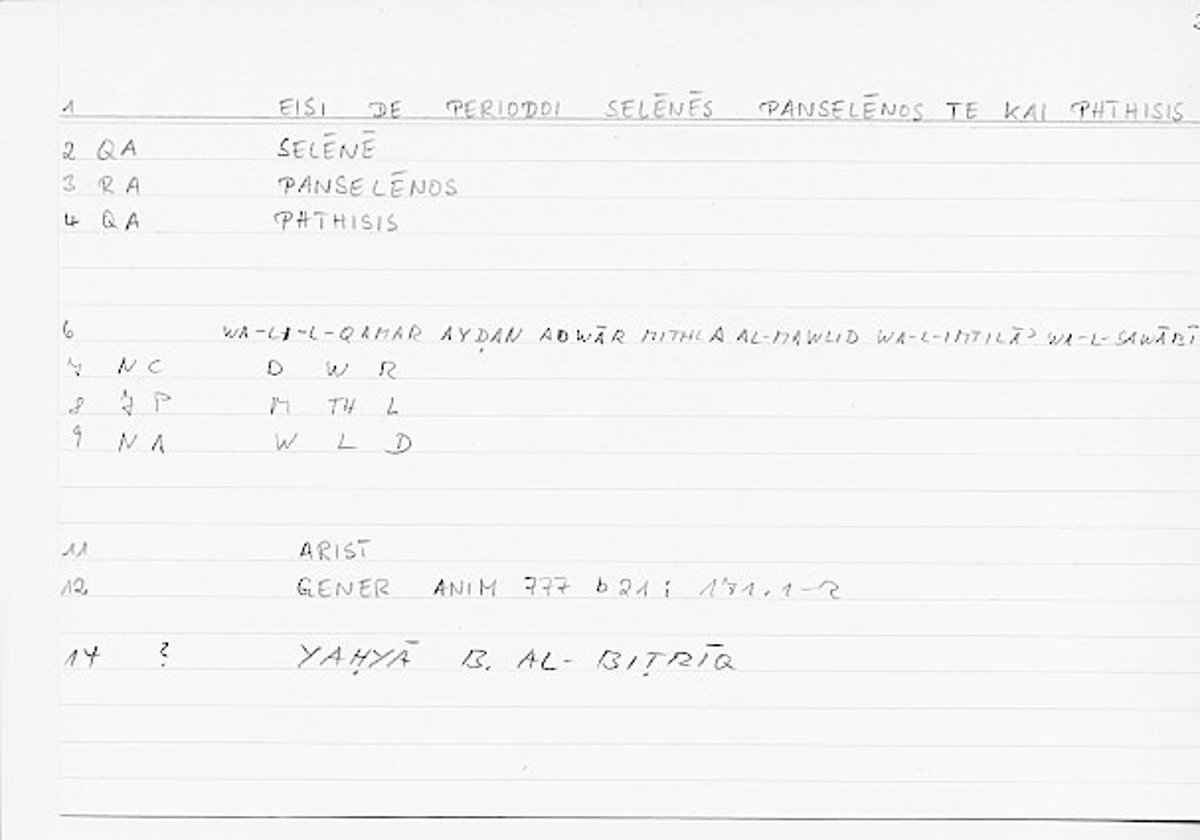 1 EISI DE PERIODOI SELĒNĒS PANSELĒNOS TE KAI PHTHISIS
2 QA SELĒNĒ
3 RA PANSELĒNOS
4 QA PHTHISIS
6 WA-LI-L-QAMAR AYḌAN ADWĀR MITHLA AL-MAWLID WA-L-IMTILĀʾ WA-L-SAWĀBĪ
7 NC D W R
8 JP M TH L
9 NA W L D
11 ARIST
12 GENER ANIM 777 b 21; 171.1-2
14 ? YAḤYĀ B. AL-BIṬRĪQ